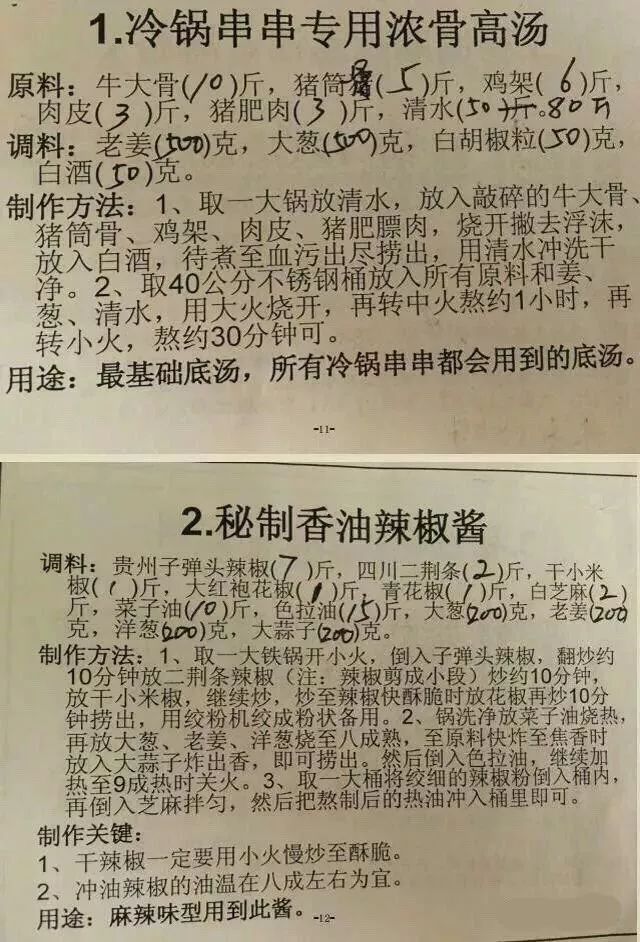 1.冷锅串串专用浓骨高汤
原料：牛大骨(10)斤，猪筒骨(5)斤，鸡架(6)斤，
肉皮(3)斤，猪肥肉(3)斤，清水(50斤。80斤
调料：老姜(500)克，大葱(500)克，白胡椒粒(50)克，
白酒(50)克。
制作方法：1、取一大锅放清水，放入敲碎的牛大骨、
猪筒骨、鸡架、肉皮、猪肥膘肉，烧开撇去浮沫，
放入白酒，待煮至血污出尽捞出，用清水冲洗干
净。2、取40公分不锈钢桶放入所有原料和姜、
葱、清水，用大火烧开，再转中火熬约1小时，再
转小火，熬约30分钟可。
用途：最基础底汤，所有冷锅串串都会用到的底汤。
-11-
2.秘制香油辣椒酱
调料：贵州子弹头辣椒(7)斤，四川二荆条(2)斤，干小米
椒(1)斤，大红袍花椒(1)斤，青花椒(1)斤，白芝麻(2)
斤，菜子油(10)斤，色拉油(15)斤，大葱(200)克，老姜(200)
克，洋葱(200)克，大蒜子(200)克。
制作方法：1、取一大铁锅开小火，倒入子弹头辣椒，翻炒约
10分钟放二荆条辣椒（注：辣椒剪成小段）炒约10分钟，
放干小米椒，继续炒，炒至辣椒快酥脆时放花椒再炒10分
钟捞出，用绞粉机绞成粉状备用。2、锅洗净放菜子油烧热，
再放大葱、老姜、洋葱烧至八成熟，至原料快炸至焦香时
放入大蒜子炸出香，即可捞出。然后倒入色拉油，继续加
热至9成热时关火。3、取一大桶将绞细的辣椒粉倒入桶内，
再倒入芝麻拌匀，然后把熬制后的热油冲入桶里即可。
制作关键：
1、干辣椒一定要用小火慢炒至酥脆。
2、冲油辣椒的油温在八成左右为宜。
用途：麻辣味型用到此酱。
-12-